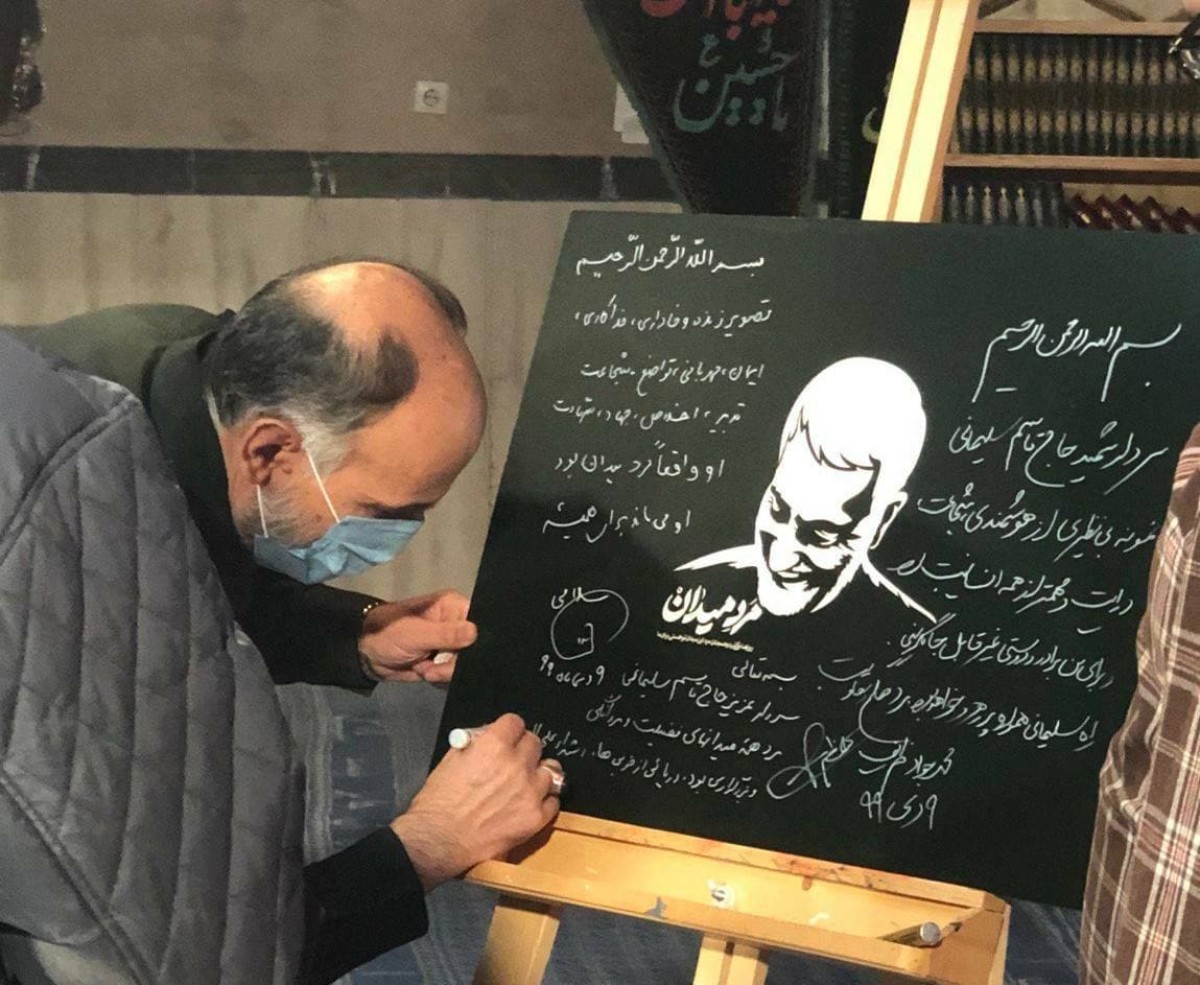 یا حسین
بسم الله الرّحمن الرّحیم
تصویر زنده وفاداری، فداکاری،
ایمان، مهربانی، تواضع، شجاعت
تدبیر، اخلاص، جهاد، شهادت
او واقعاً مرد میدان بود
او می‌ماند برای همیشه
سلامی
مرد میدان
بسم الله الرحمن الرحیم
سردار شهید حاج قاسم سلیمانی
نمونه بی‌نظیری از هوشمندی، شجاعت
درایت و مهمتر از همه انسانیت
برای من برادر و دوستی غیر قابل جایگزینی
راه سلیمانی همواره پر رهرو خواهد بود
محمد جواد ظریف
۹ دی ۹۹
بسمه تعالی
سردار عزیز حاج قاسم سلیمانی ۹ دیماه ۹۹
مرد همهٔ میدانهای فضیلت و مردانگی
و ایثارگری بود. دریائی از خوبی ها.